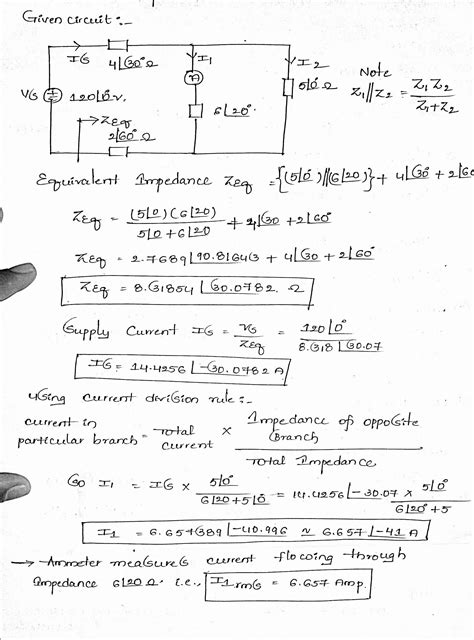 Given circuit :-
IG 4∠30° Ω I1 I2
A 5∠0° Ω Note
VG 120∠0° v, 6∠20° Z1∥Z2 = Z1 Z2 / Z1+Z2
→ZEq
2∠60° Ω
Equivalent Impedance ZEq = {(5∠0°)∥(6∠20)} + 4∠30° + 2∠60
ZEq = (5∠0)(6∠20) / 5∠0+6∠20 + 4∠30 + 2∠60°
ZEq = 2.7689∠10.81643 + 4∠30 + 2∠60°
ZEq = 8.31854∠30.0782. Ω
Supply Current IG = VG / ZEq = 120∠0° / 8.318∠30.07
IG = 14.4256∠-30.0782 A
using current division rule :-
current in particular branch = Total current × Impedance of opposite Branch / Total Impedance
So I1 = IG × 5∠0° / 6∠20+5∠0 = 14.4256∠-30.07 × 5∠0° / 6∠20+5
I1 = 6.657389∠-40.996 ≈ 6.657∠-41 A
→ Ammeter measures current flowing through
Impedance 6∠20 Ω. i.e., I1rms = 6.657 Amp.